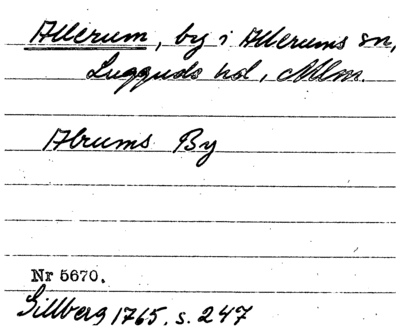 Allerum, by i Allerums sn,
Luggude hd, Mlm.
Abrums By
Nr 5670.
Gillberg 1765, s. 247